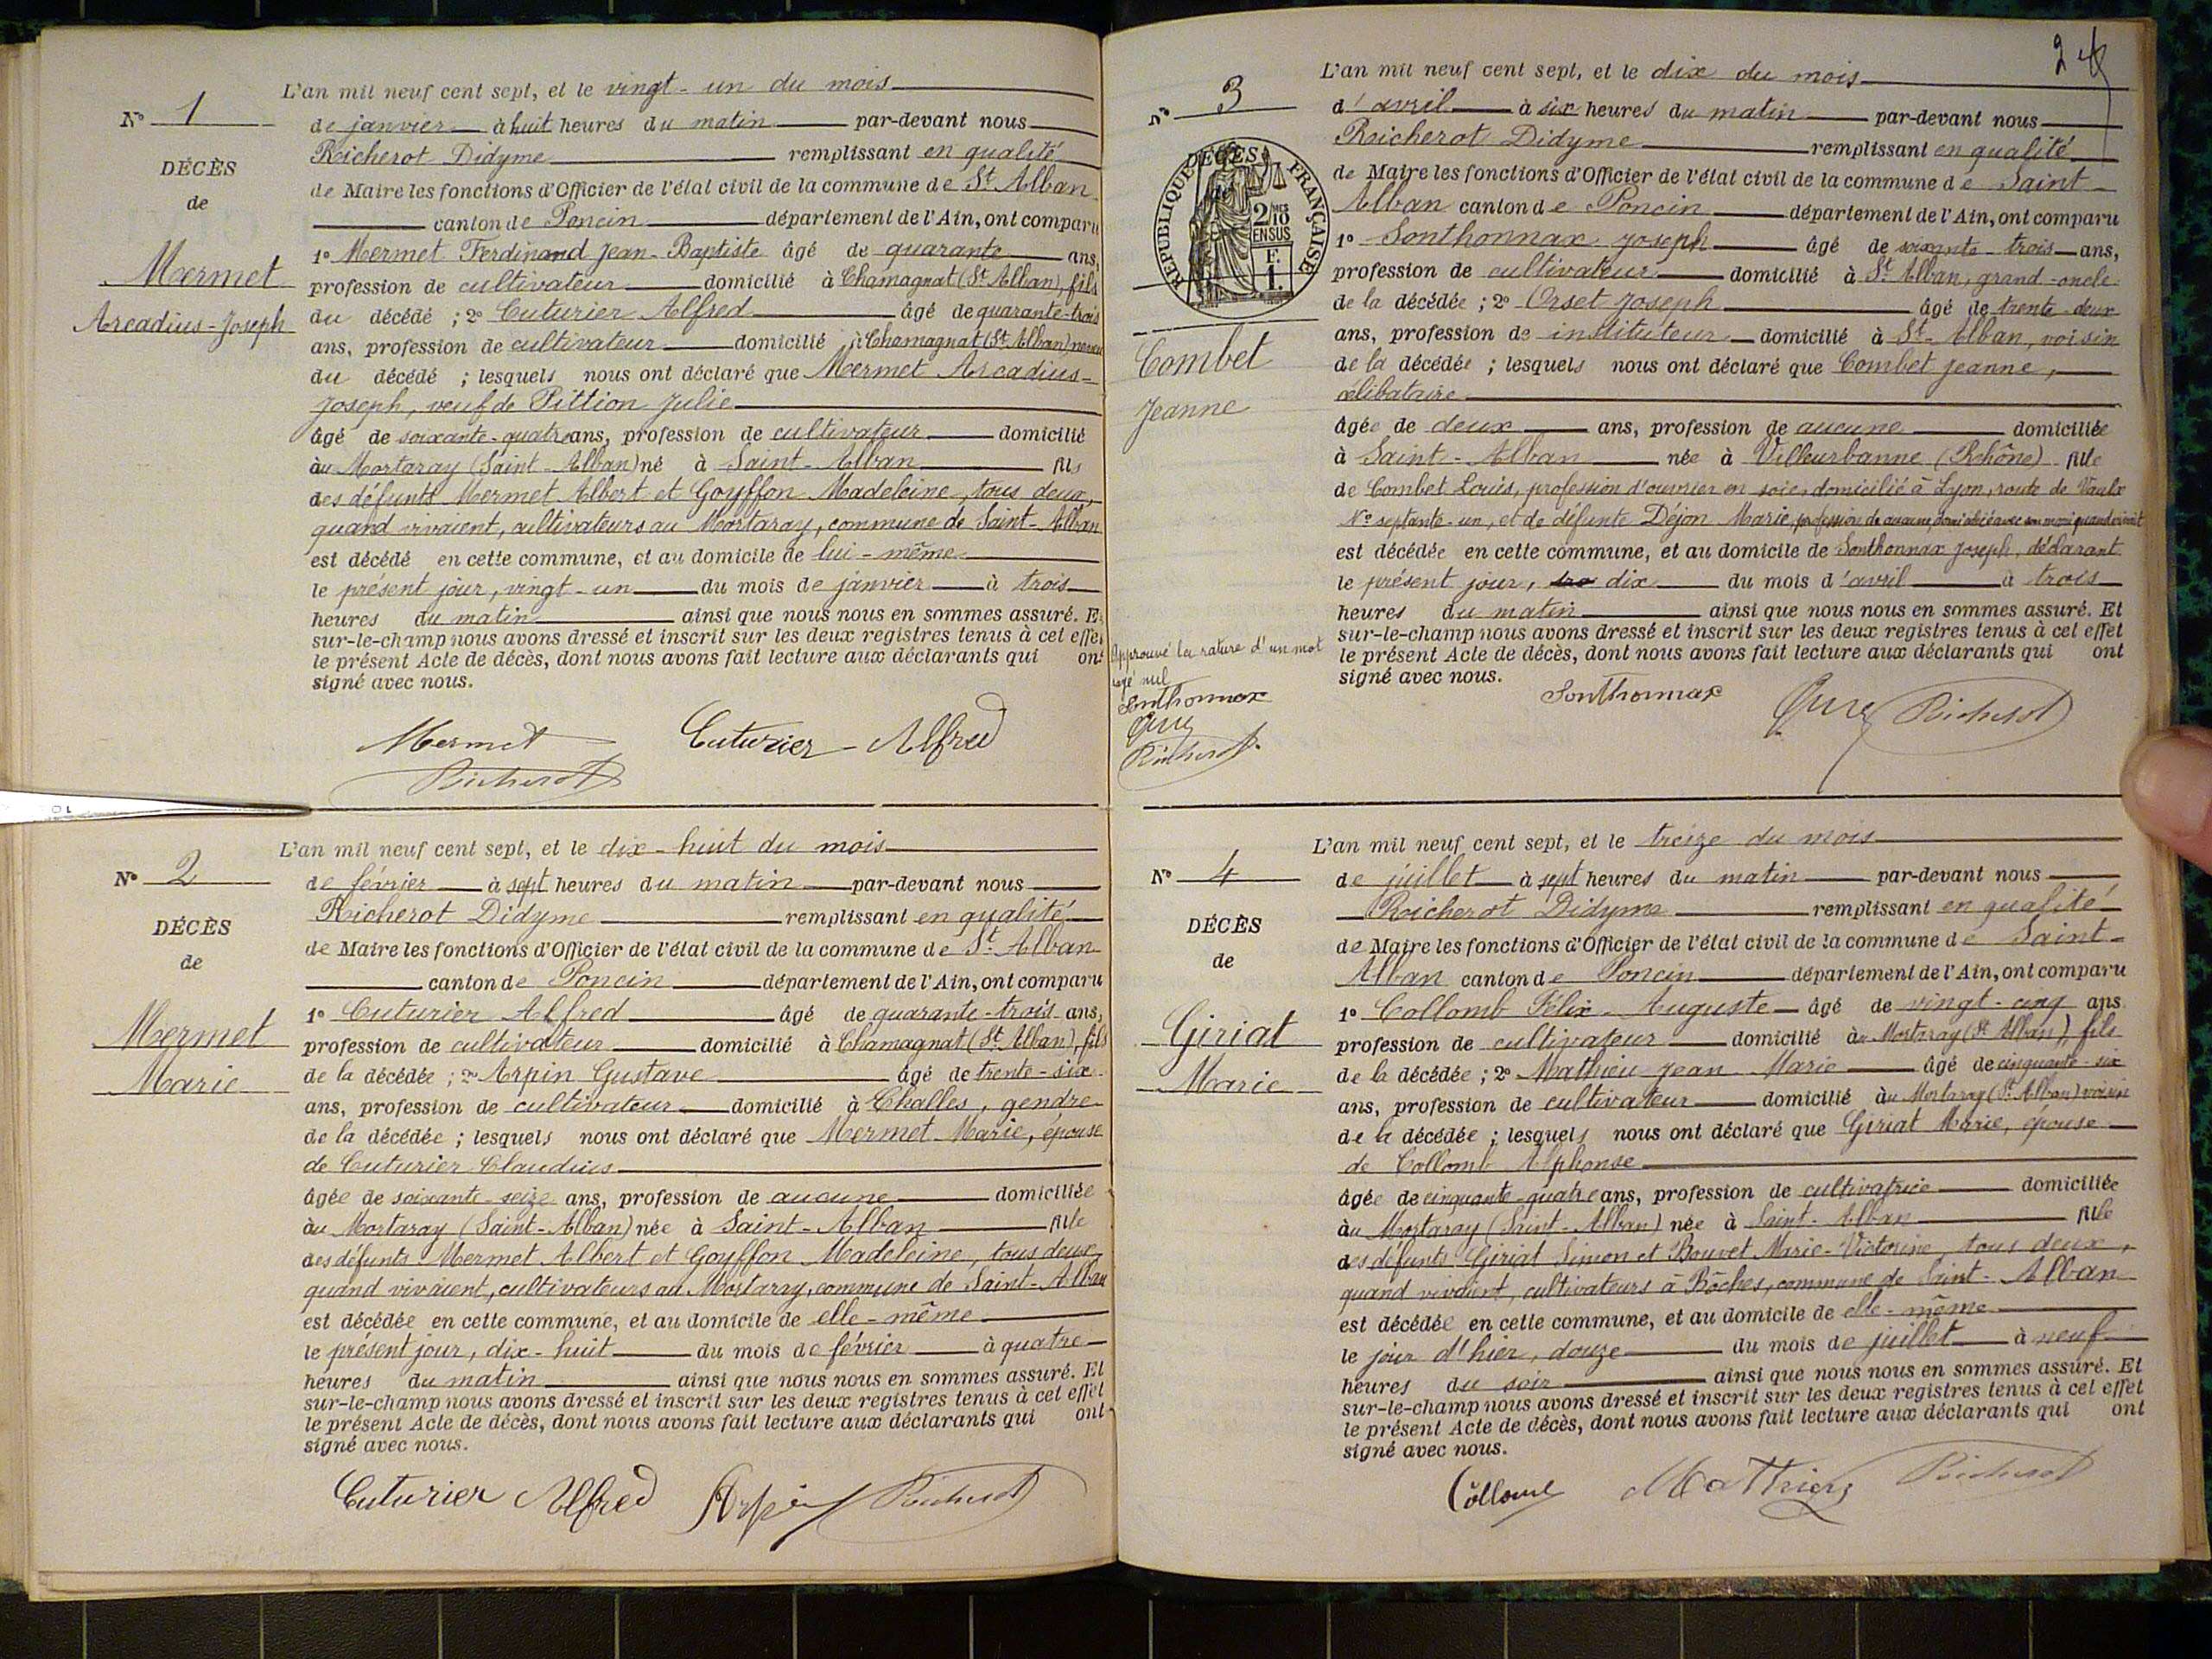 L'an mil neuf cent sept, et le vingt-un du mois
N° 1
de janvier à huit heures du matin par-devant nous
Richerot Didyme remplissant en qualité
DÉCÈS
de Maire les fonctions d'Officier de l'état civil de la commune de St Alban
de
canton de Poncin département de l'Ain, ont comparu
1° Mermet Ferdinand Jean-Baptiste âgé de quarante ans,
Mermet
profession de cultivateur domicilié à Chamagnat (St Alban), fils
Arcadius-Joseph
du décédé ; 2° Cuturier Alfred âgé de quarante-trois
ans, profession de cultivateur domicilié à Chamagnat (St Alban) neveu
du décédé ; lesquels nous ont déclaré que Mermet Arcadius-
Joseph, veuf de Pittion Julie
âgé de soixante-quatre ans, profession de cultivateur domicilié
au Mortaray (Saint-Alban) né à Saint-Alban fils
des défunts Mermet Albert et Goyffon Madeleine, tous deux,
quand vivaient, cultivateurs au Mortaray, commune de Saint-Alban
est décédé en cette commune, et au domicile de lui-même
le présent jour, vingt-un du mois de janvier à trois
heures du matin ainsi que nous nous en sommes assuré. Et
sur-le-champ nous avons dressé et inscrit sur les deux registres tenus à cet effet
le présent Acte de décès, dont nous avons fait lecture aux déclarants qui ont
signé avec nous.
Mermet Cuturier-Alfred
Richerot
L'an mil neuf cent sept, et le dix-huit du mois
N° 2
de février à sept heures du matin par-devant nous
Richerot Didyme remplissant en qualité
DÉCÈS
de Maire les fonctions d'Officier de l'état civil de la commune de St Alban
de
canton de Poncin département de l'Ain, ont comparu
1° Cuturier Alfred âgé de quarante-trois ans,
Mermet
profession de cultivateur domicilié à Chamagnat (St Alban), fils
Marie
de la décédée ; 2° Arpin Gustave âgé de trente-six
ans, profession de cultivateur domicilié à Challes, gendre
de la décédée ; lesquels nous ont déclaré que Mermet Marie, épouse
de Cuturier Claudius
âgée de soixante-seize ans, profession de aucune domiciliée
au Mortaray (Saint-Alban) née à Saint-Alban fille
des défunts Mermet Albert et Goyffon Madeleine, tous deux,
quand vivaient, cultivateurs au Mortaray, commune de Saint-Alban
est décédée en cette commune, et au domicile de elle-même
le présent jour, dix-huit du mois de février à quatre
heures du matin ainsi que nous nous en sommes assuré. Et
sur-le-champ nous avons dressé et inscrit sur les deux registres tenus à cet effet
le présent Acte de décès, dont nous avons fait lecture aux déclarants qui ont
signé avec nous.
Cuturier Alfred Arpin Richerot
2
L'an mil neuf cent sept, et le dix du mois
N° 3
d'avril à six heures du matin par-devant nous
Richerot Didyme remplissant en qualité
RÉPUBLIQUE FRANÇAISE
DÉCÈS
2/10
EN SUS
F.
1.
de Maire les fonctions d'Officier de l'état civil de la commune de Saint-
Alban canton de Poncin département de l'Ain, ont comparu
1° Sonthonnax Joseph âgé de soixante-trois ans,
profession de cultivateur domicilié à St Alban, grand-oncle
de la décédée ; 2° Orset Joseph âgé de trente-deux
ans, profession de instituteur domicilié à St-Alban, voisin
Combet
de la décédée ; lesquels nous ont déclaré que Combet Jeanne,
Jeanne
célibataire
âgée de deux ans, profession de aucune domiciliée
à Saint-Alban née à Villeurbanne (Rhône) fille
de Combet Louis, profession d'ouvrier en soie, domicilié à Lyon, route de Vaulx
N° septante-un, et de défunte Déjon Marie, profession de aucune, domiciliée avec son mari quand vivait
est décédée en cette commune, et au domicile de Sonthonnax Joseph, déclarant
le présent jour, dix du mois d'avril à trois
heures du matin ainsi que nous nous en sommes assuré. Et
sur-le-champ nous avons dressé et inscrit sur les deux registres tenus à cet effet
le présent Acte de décès, dont nous avons fait lecture aux déclarants qui ont
signé avec nous.
Approuvé la rature d'un mot
rayé nul
Sonthonnax
Richerot
Sonthonnax Richerot
L'an mil neuf cent sept, et le treize du mois
N° 4
de juillet à sept heures du matin par-devant nous
Richerot Didyme remplissant en qualité
DÉCÈS
de Maire les fonctions d'Officier de l'état civil de la commune de Saint-
de
Alban canton de Poncin département de l'Ain, ont comparu
1° Collomb Félix-Auguste âgé de vingt-cinq ans
Giriat
profession de cultivateur domicilié au Mortaray (St Alban), fils
Marie
de la décédée ; 2° Mathieu Jean Marie âgé de cinquante-six
ans, profession de cultivateur domicilié au Mortaray (St Alban) voisin
de la décédée ; lesquels nous ont déclaré que Giriat Marie, épouse
de Collomb Alphonse
âgée de cinquante-quatre ans, profession de cultivatrice domiciliée
au Mortaray (Saint-Alban) née à Saint-Alban fille
des défunts Giriat Simon et Bouvet Marie-Victorine, tous deux,
quand vivaient, cultivateurs à Bôches, commune de Saint-Alban
est décédée en cette commune, et au domicile de elle-même
le jour d'hier, douze du mois de juillet à neuf
heures du soir ainsi que nous nous en sommes assuré. Et
sur-le-champ nous avons dressé et inscrit sur les deux registres tenus à cet effet
le présent Acte de décès, dont nous avons fait lecture aux déclarants qui ont
signé avec nous.
Collomb Mathieu Richerot